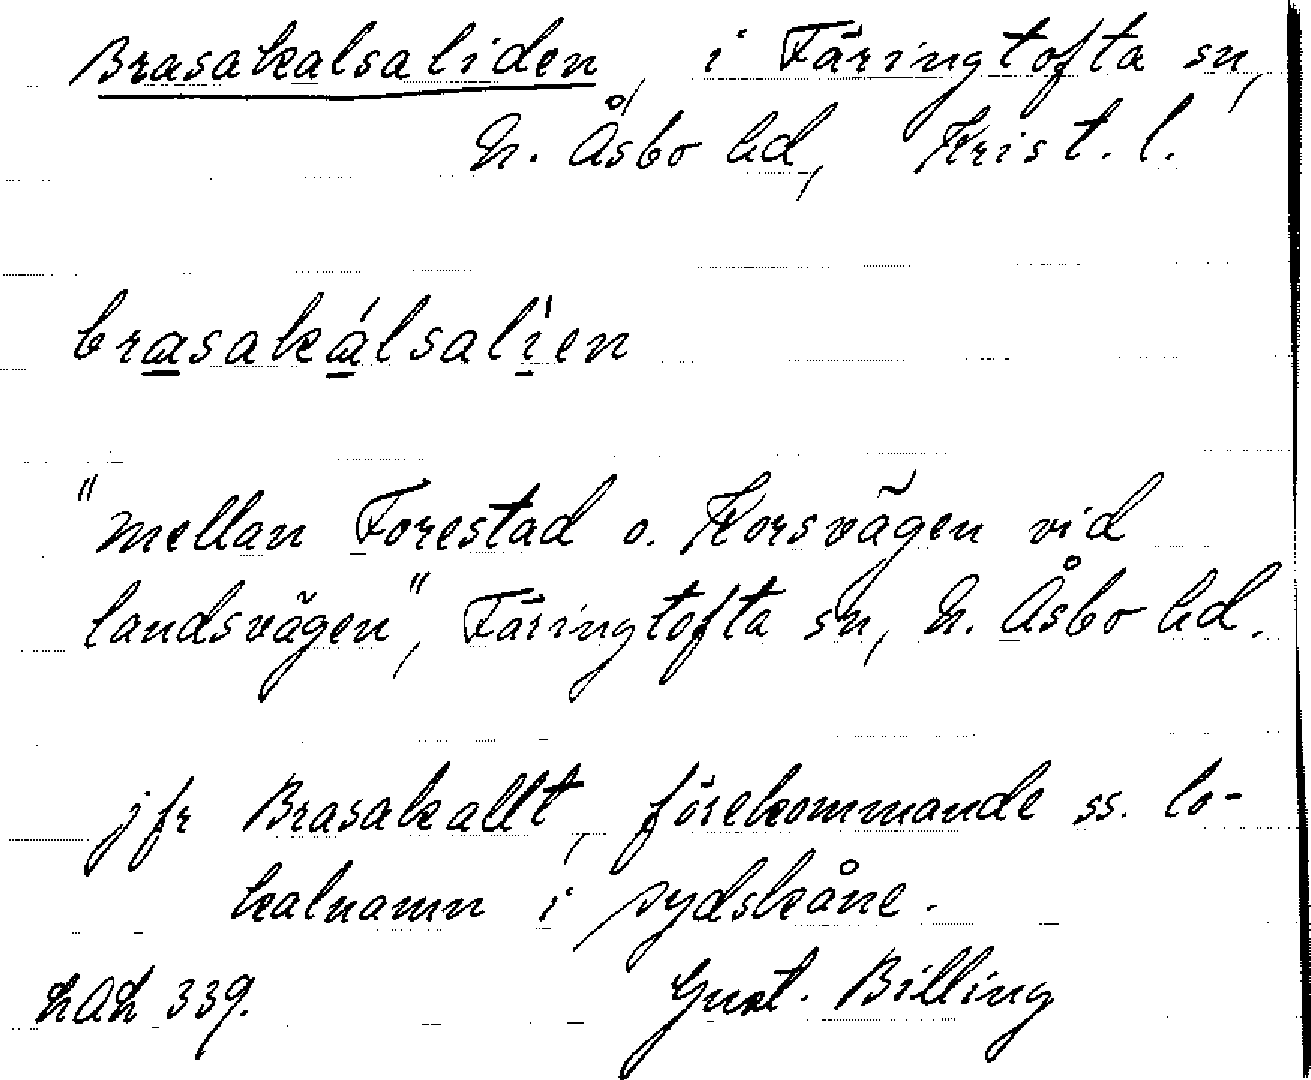 Brasakalsaliden, i Färingtofta sn,
N. Åsbo hd, Krist. l.
brasakálsalien
"mellan Forestad o. Korsvägen vid
landsvägen", Färingtofta sn, N. Åsbo hd.
jfr Brasakallt, förekommande ss. lo-
kalnamn i sydskåne.
LAL 339. Gust. Billing